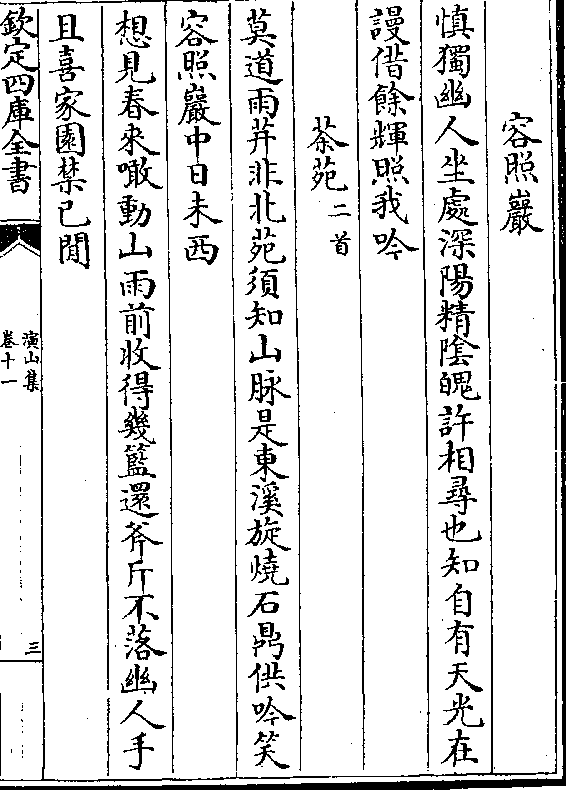 容照巖
慎獨幽人坐處深陽精陰魄許相尋也知自有天光在
謾借餘輝照我吟
茶苑二首
莫道雨芽非北苑須知山脉是東溪旋燒石鼎供吟笑
容照巖中日未西
想見春來噉動山雨前收得幾籃還斧斤不落幽人手
且喜家園禁已閒
欽定四庫全書
演山集
卷十一
三